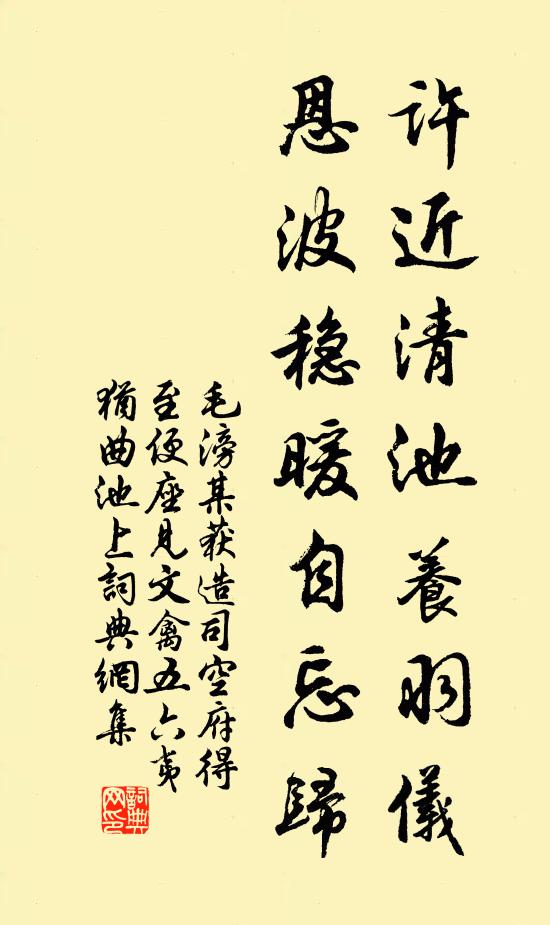 許近清池養羽儀
恩波稳暖自忘歸
毛滂某获造司空府得
至便座見文禽五六夷
猶曲池上詞典網集
詞典
网印